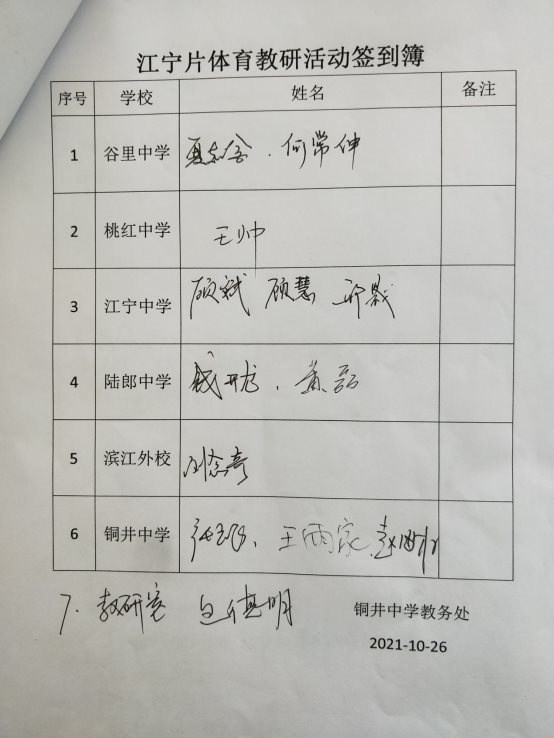 江宁片体育教研活动签到簿
序号 学校 姓名 备注
1 谷里中学 何常伸
2 桃红中学 王帅
3 江宁中学 顾斌 顾慧
4 陆郎中学 钱开龙 . 黄磊
5 滨江外校 刘念奇
6 铜井中学 王雨家
7. 教研室
铜井中学教务处
2021-10-26